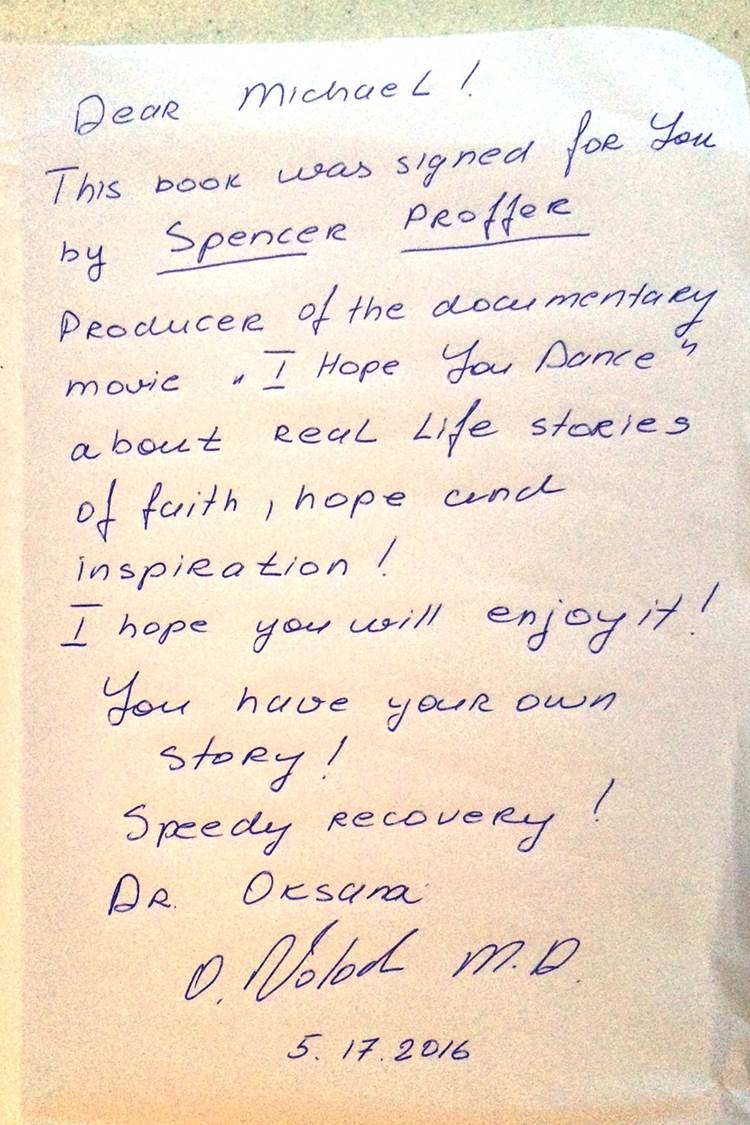 Dear Michael!
This book was signed for You
by Spencer Proffer
Producer of the documentary
movie „I Hope You Dance"
about real Life stories
of faith, hope and
inspiration!
I hope you will enjoy it!
You have your own
story!
Speedy recovery!
Dr. Oksana
O. M.D.
5.17.2016